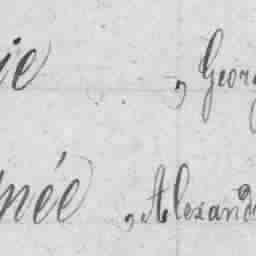 ie , Georg
née , Alexand